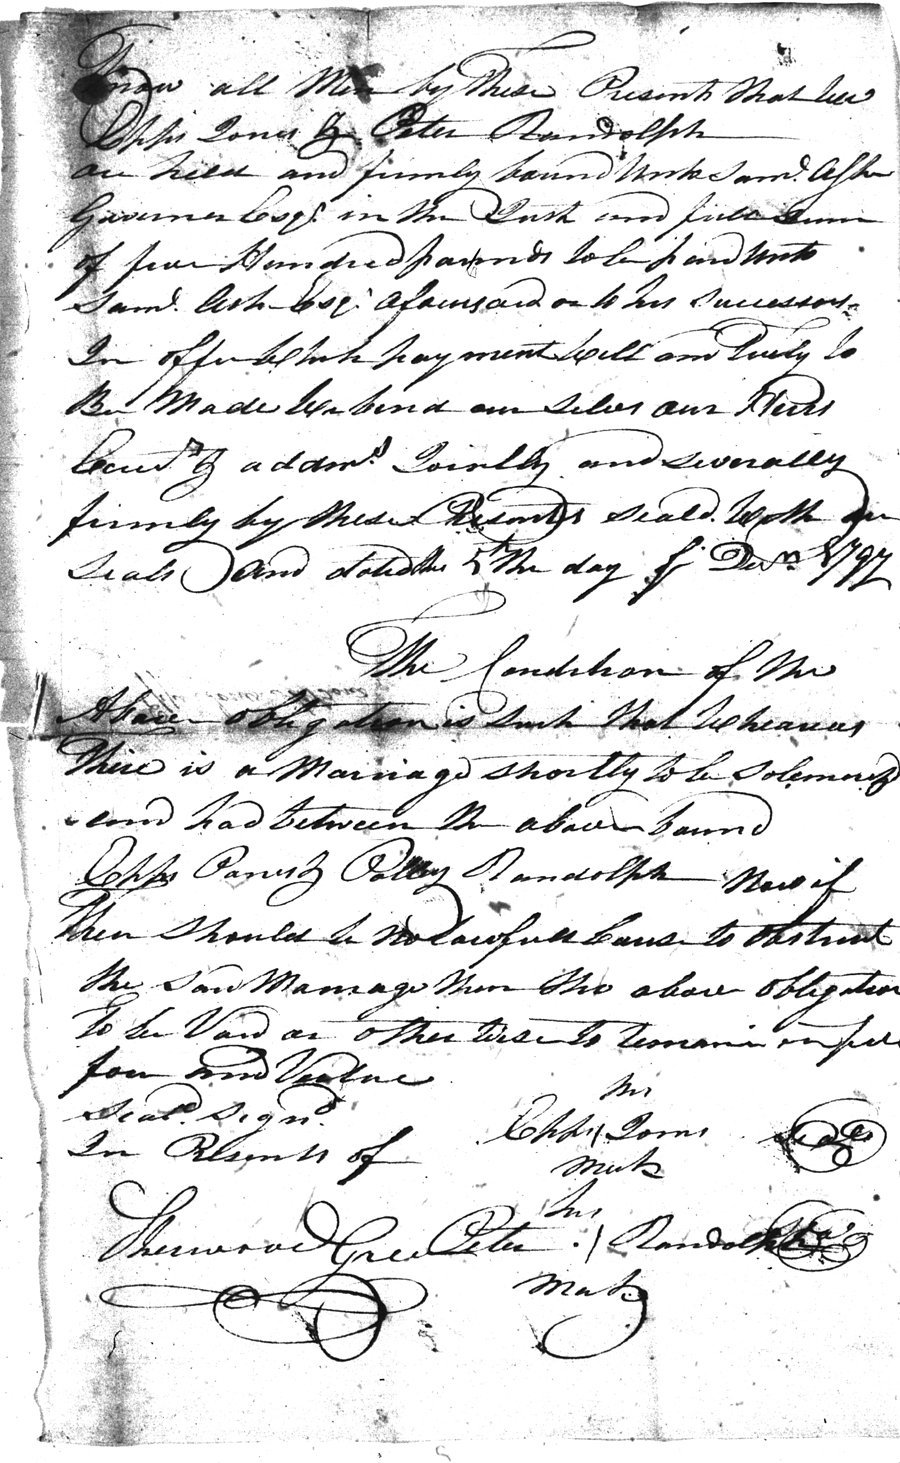 Know all Men by These Presents that we
Epps Jones & Peter Randolph
are held and firmly bound unto Saml. Ashe
Governer Esqr. in the Just and full Sum
of five Hundred pounds to be paid unto
Saml. Ashe Esqr. aforesaid or to his Successors
In offic Which payment well and Truly to
Be Made We bind our Selves our Heirs
Excrs. & addmrs. Jointly and severally
firmly by these Presents seald. With our
Seals And dated the 5th The day of Decm 1797
The Condition of the
Above obligation is Such that Wheareas
There is a Marriage Shortly to be Solemnized
and had between the above bound
Epps Jones & Patsy Randolph Now if
Their Should be No Lawfull Cause to obstruct
the said Marriage then the above obligation
To be Void or other wise to Remain in full
forc and Vertue
Seald. Signd.
In Presents of
his
Epps Jones seal
Mark
his
Sherwood Gree Peter Randolph
Mark